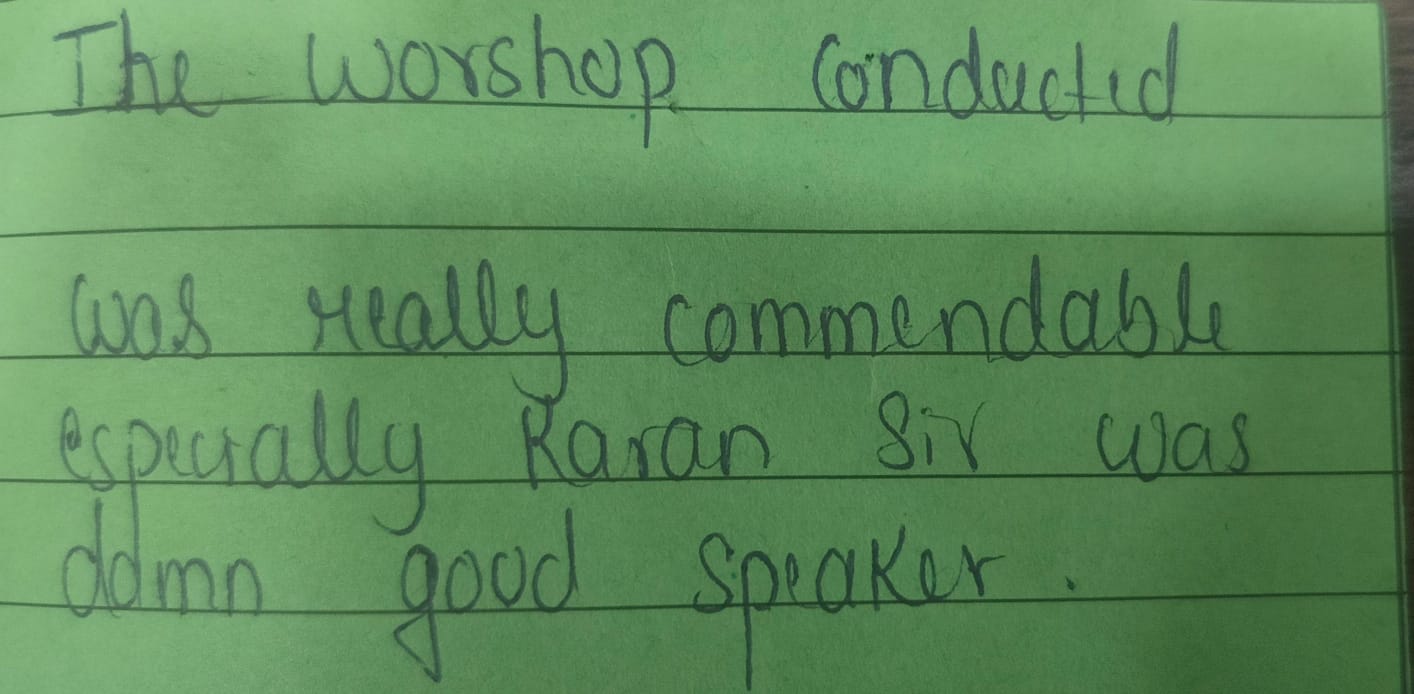 The worshop conducted
was really commendable
especially Karan Sir was
damn good speaker.